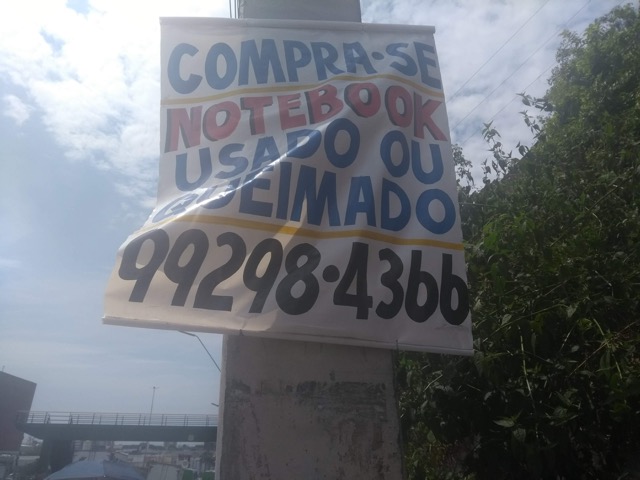 COMPRA-SE
NOTEBOOK
USADO OU
QUEIMADO
99298-4366